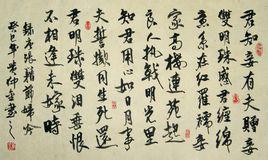 君知妾有夫贈妾
雙明珠感君纏綿
意系在紅羅襦妾
家高樓連苑起
良人執戟明光里
知君用心如日月事
夫誓擬同生死還
君明珠雙淚垂恨
不相逢未嫁時
錄唐張籍節婦吟
癸巳年書之